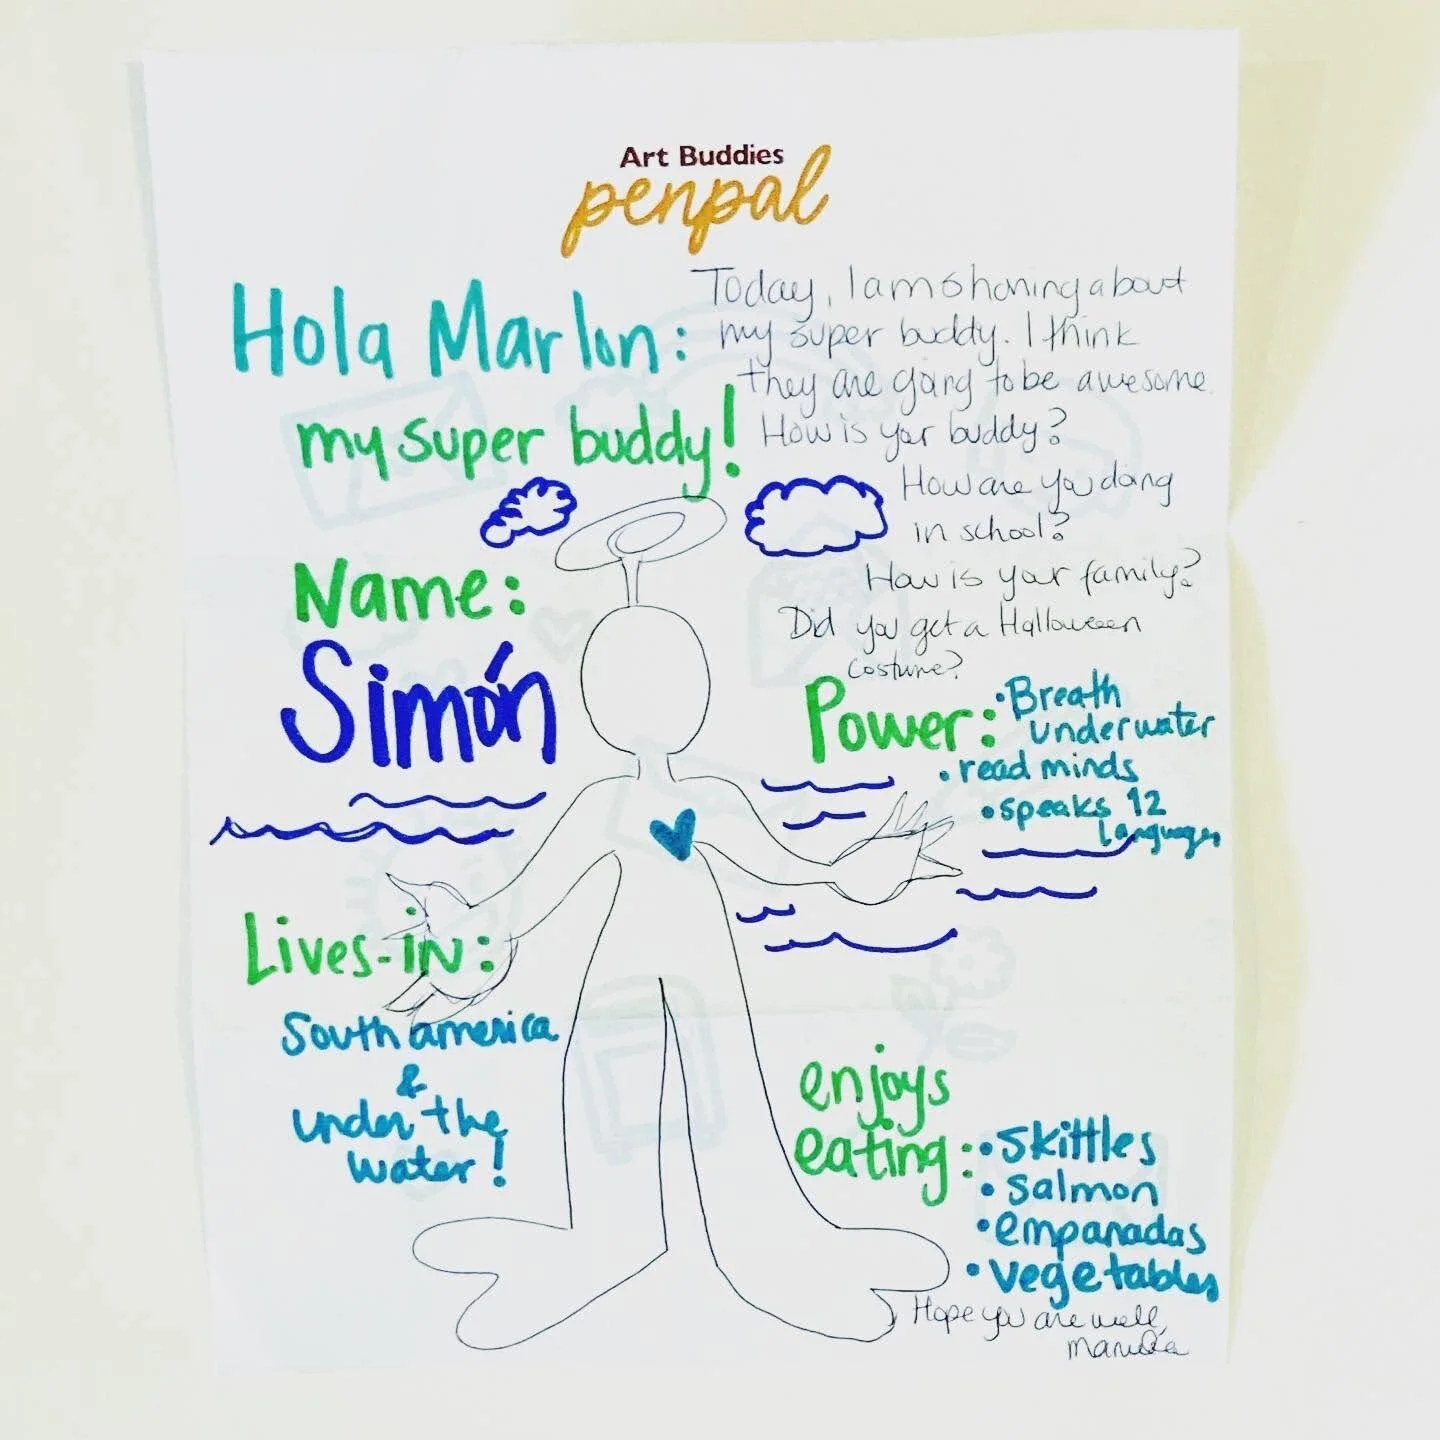 Art Buddies
penpal
Hola Marlon:
my super buddy!
Today, I am sharing about
my super buddy. I think
they are going to be awesome.
How is your buddy?
How are you doing
in school?
How is your family?
Did you get a Halloween
costume?
Name:
Simón
Power:
• Breath
underwater
• read minds
• speaks 12
languages
Lives-in:
South america
&
under the
water!
enjoys
eating:
• Skittles
• salmon
• empanadas
• vegetables
Hope you are well,